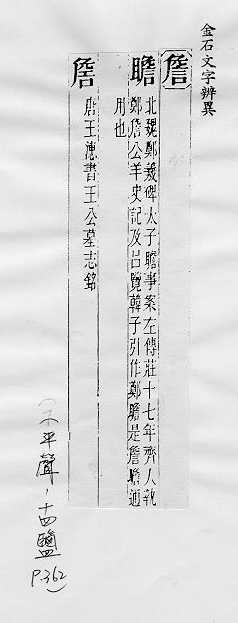 金石文字辨異
詹
瞻
北魏鄭羲碑太子瞻事案左傳莊十七年齊人執
鄭詹公羊史記及呂覽韓子引作鄭瞻是詹瞻通
用也
詹
唐王德書王公墓志銘
平聲、十四鹽
P.362)